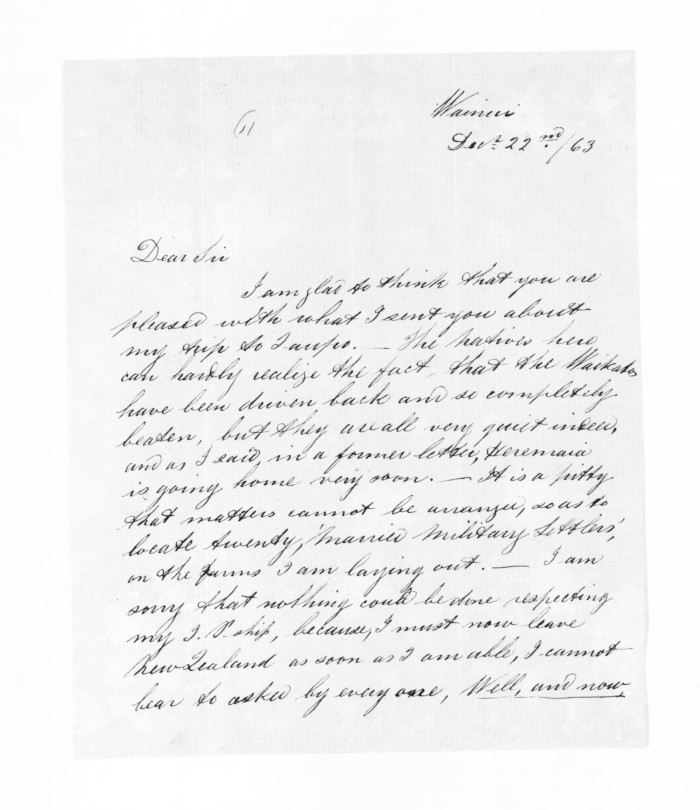 11
Wainui
Decr. 22nd/63
Dear Sir
I am glad to think that you are
pleased with what I sent you about
my trip to Taupo. — The Natives here
can hardly realize the fact, that the Waikatos
have been driven back and so completely
beaten, but they are all very quiet indeed,
and as I said, in a former letter, Heremaia
is going home very soon. — It is a pitty
that matters cannot be arranged, so as to
locate twenty, 'Married Military Settlers',
on the farms I am laying out. — I am
sorry that nothing could be done respecting
my J. P. ship, because, I must now leave
New Zealand as soon as I am able, I cannot
bear to asked by every one, Well, and now,